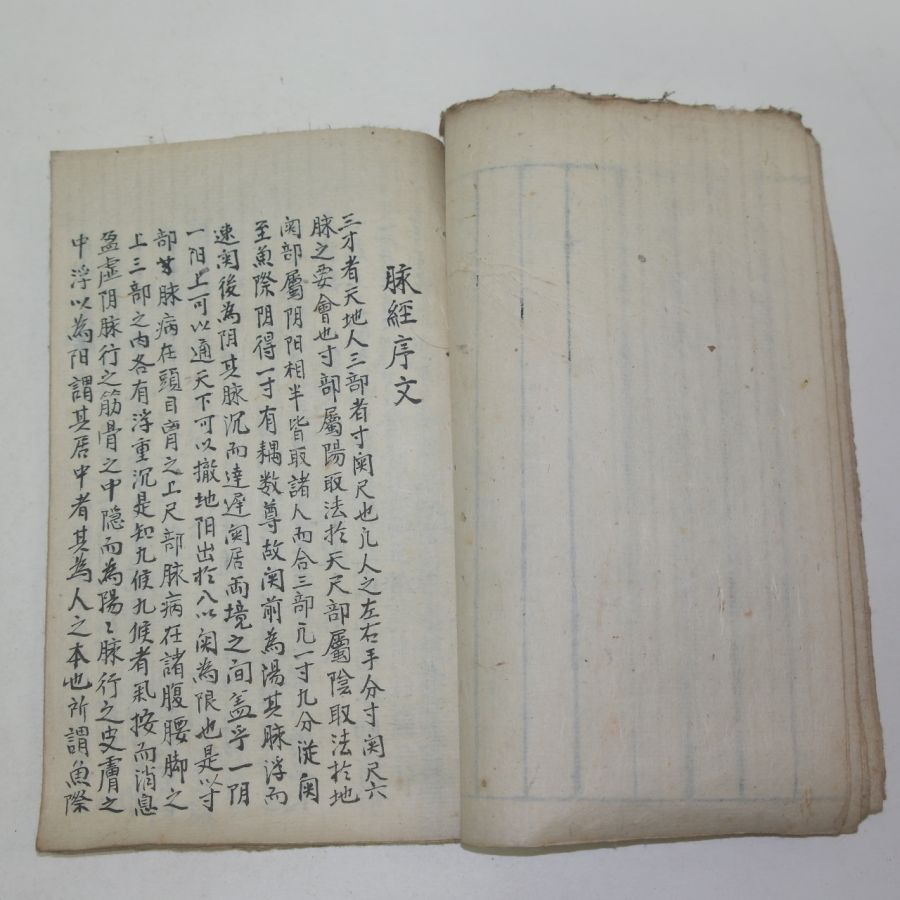 脉經序文
三才者天地人三部者寸関尺也凢人之左右手分寸関尺六
脉之要會也寸部屬陽取法扵天尺部屬陰取法扵地
関部屬阴阳相半皆取諸人而合三部凢一寸九分從関
至魚際阴得一寸有耦数尊故関前為湯其脉浮而
速関後為阴其脉沉而遲関居両境之间盖乎一阴
一阳上可以通天下可以撤地阳出扵八以関為限也是以寸
部脉病在頭目胷之上尺部脉病在諸腹腰脚之
上三部之内各有浮重沉是知九候九候者氣按而消息
盈虛阴脉行之筋骨之中隠而為陽〻脉行之皮膚之
中浮以為阳謂其居中者其為人之本也所謂魚際